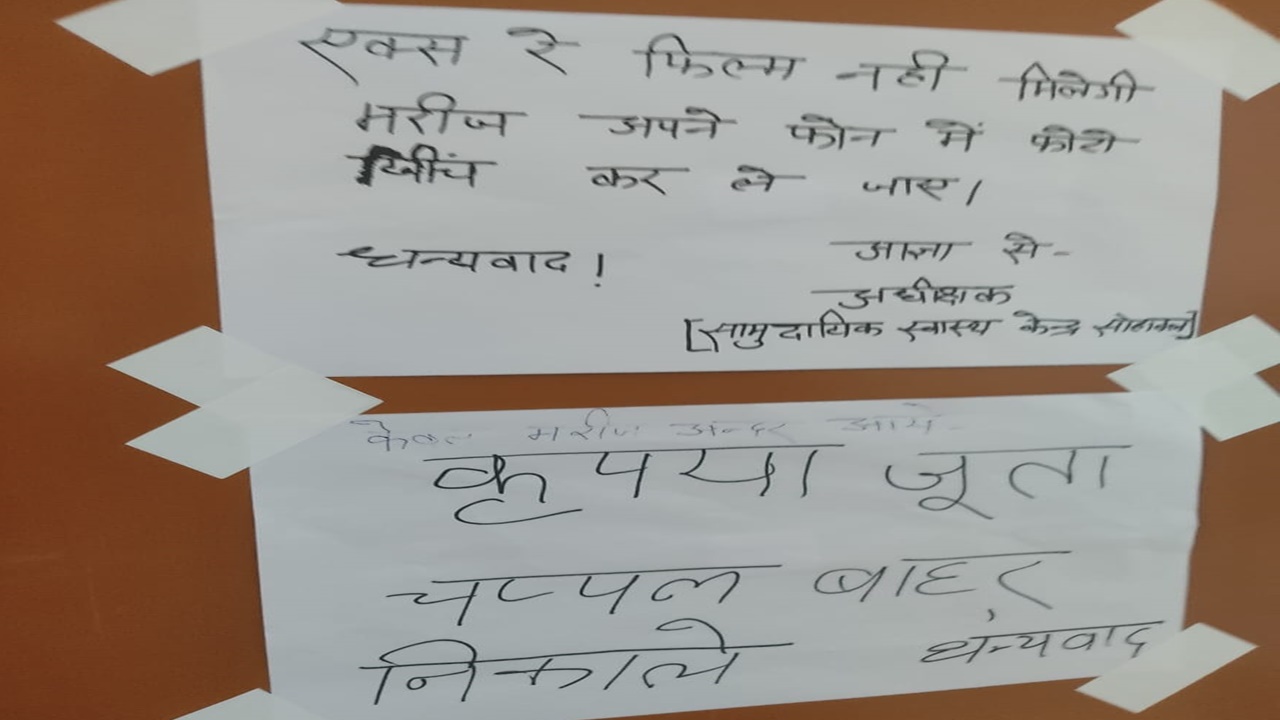 एक्स रे फिल्म नही मिलेगी
मरीज अपने फोन में फोटो
खिींच कर ले जाए।
धन्यवाद! आज्ञा से-
अधीक्षक
[सामुदायिक स्वास्थ केन्द्र सोहावल]
केवल मरीज अन्दर आये-
कृपया जूता
चप्पल बाहर
निकाले धंन्यवाद